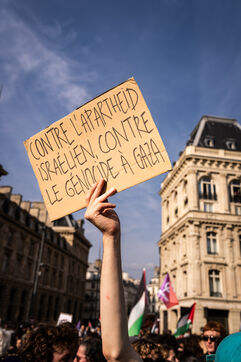 CONTRE L'APARTHEID
ISRAÉLIEN, CONTRE
LE GÉNOCIDE À GAZA